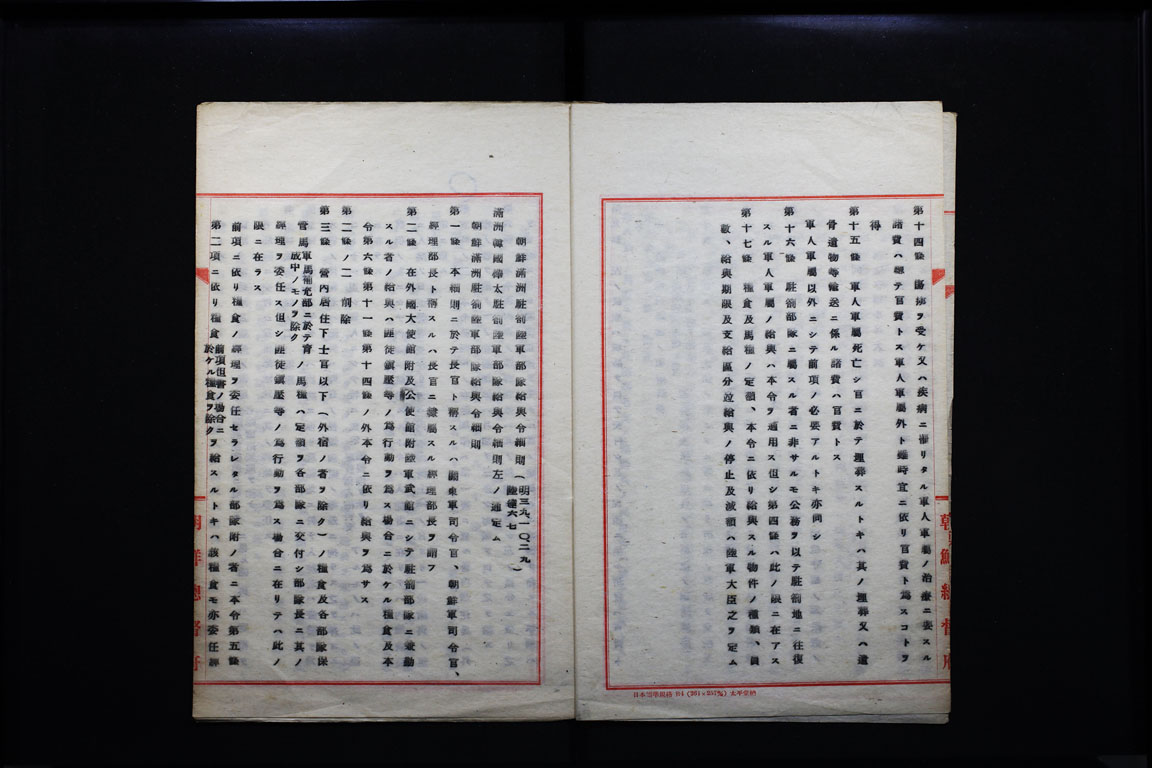 第十四條 傷痍ヲ受ケ又ハ疾病ニ罹リタル軍人軍屬ノ治療ニ要スル
諸費ハ總テ官費トス軍人軍屬外ト雖時宜ニ依リ官費ト爲スコトヲ
得
第十五條 軍人軍屬死亡シ官ニ於テ埋葬スルトキハ其ノ埋葬又ハ遺
骨遺物等輸送ニ係ル諸費ハ官費トス
軍人軍屬以外ニシテ前項ノ必要アルトキ亦同シ
第十六條 駐箚部隊ニ屬スル者ニ非サルモ公務ヲ以テ駐箚地ニ往復
スル軍人軍屬ノ給與ハ本令ヲ適用ス但シ第四條ハ此ノ限ニ在アス
第十七條 糧食及馬糧ノ定額、本令ニ依リ給與スル物件ノ種類、員
數、給與期限及支給區分竝給與ノ停止及減額ハ陸軍大臣之ヲ定ム
朝鮮總督府
日本標準規格 B4 (364×257㎜)
朝鮮滿洲駐箚陸軍部隊給與令細則(明三九、一〇、二九 陸達六七)
滿洲韓國樺太駐箚陸軍部隊給與令細則左ノ通定ム
朝鮮滿洲駐箚陸軍部隊給與令細則
第一條 本細則ニ於テ長官ト稱スルハ關東軍司令官、朝鮮軍司令官、
經理部長ト稱スルハ長官ニ隷屬スル經理部長ヲ謂フ
第二條 在外國大使館附及公使館附陸軍武官ニシテ駐箚部隊ニ兼勤
スル者ノ給與ハ陸徒鎭壓等ノ爲行動ヲ爲ス場合ニ於ケル糧食及本
令第六條第十一條第十四條ノ外本令ニ依リ給與ヲ爲サス
第二條ノ二 削除
第三條 營內居住下士官以下(外宿ノ者ヲ除ク)ノ糧食及各部隊保
管馬(軍馬補充部ニ於テ育成中ノモノヲ除ク)ノ馬糧ハ定額ヲ各部隊ニ交付シ部隊長ニ其ノ
經理ヲ委任ス但シ陸徒鎭壓等ノ爲行動ヲ爲ス場合ニ在リテハ此ノ
限ニ在ラス
前項ニ依リ糧食ノ經理ヲ委任セラレタル部隊附ノ者ニ本令第五條
第二項ニ依リ糧食(前項但書ノ場合ニ於ケル糧食ヲ除ク)ヲ給スルトキハ該糧食モ亦委任經
朝鮮總督府